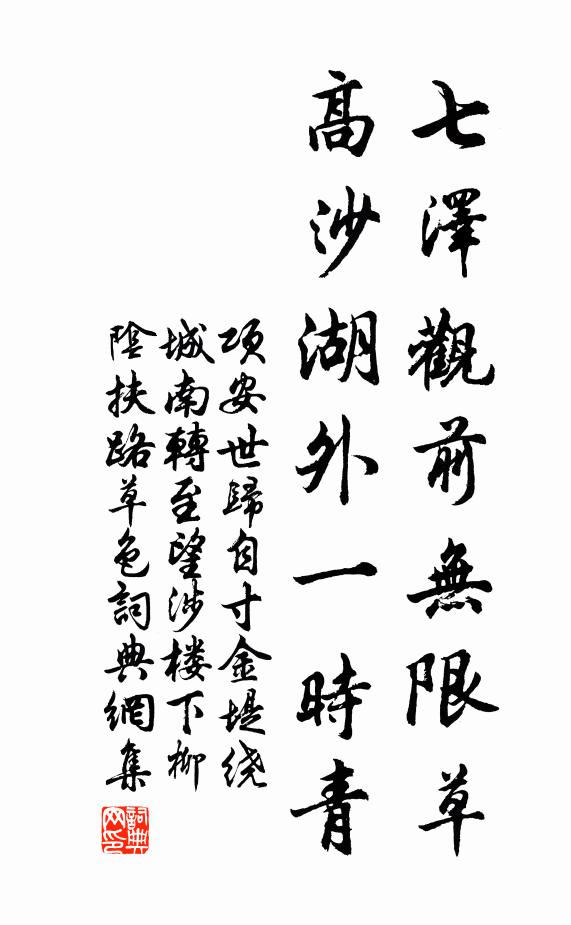 七澤觀前無限草
高沙湖外一時青
项安世歸自寸金堤绕
城南轉至望沙楼下柳
陰扶路草色詞典網集
詞典网印